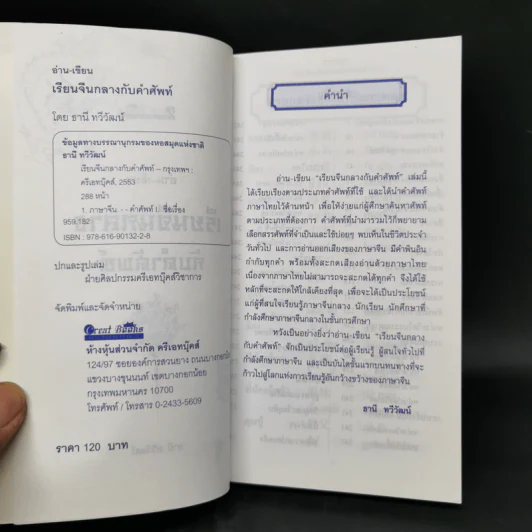 อ่าน-เขียน
เรียนจีนกลางกับคำศัพท์
โดย ธานี ทวีวัฒน์
ข้อมูลทางบรรณานุกรมของหอสมุดแห่งชาติ
ธานี ทวีวัฒน์
เรียนจีนกลางกับคำศัพท์ -- กรุงเทพฯ :
ครีเอทบุ๊คส์, 2553
288 หน้า
1. ภาษาจีน - - คำศัพท์ I. ชื่อเรื่อง
ISBN : 978-616-90132-2-8
ปกและรูปเล่ม
ฝ่ายศิลปกรรมครีเอทบุ๊คส์วิชาการ
จัดพิมพ์และจัดจำหน่าย
Great Books
ห้างหุ้นส่วนจำกัด ครีเอทบุ๊คส์
124/97 ซอยองค์การสวนยาง ถนนบางกอกน้อย
แขวงบางขุนนนท์ เขตบางกอกน้อย
กรุงเทพมหานคร 10700
โทรศัพท์ / โทรสาร 0-2433-5609
ราคา 120 บาท
คำนำ
อ่าน-เขียน "เรียนจีนกลางกับคำศัพท์" เล่มนี้
ได้เรียบเรียงตามประเภทคำศัพท์ที่ใช้ และได้นำคำศัพท์
ภาษาไทยไว้ด้านหน้า เพื่อให้ง่ายแก่ผู้ศึกษาค้นหาศัพท์
ตามประเภทที่ต้องการ คำศัพท์ที่นำมารวมไว้ก็พยายาม
เลือกสรรศัพท์ที่จำเป็นและใช้บ่อยๆ พบเห็นในชีวิตประจำ
วันทั่วไป และการอ่านออกเสียงของภาษาจีน มีคำพินอิน
กำกับทุกคำ พร้อมทั้งสะกดเสียงอ่านด้วยภาษาไทย
เนื่องจากภาษาไทยไม่สามารถจะสะกดได้ทุกคำ จึงได้ใช้
หลักที่จะสะกดให้ใกล้เคียงที่สุด เพื่อจะได้เป็นประโยชน์
แก่ผู้ที่สนใจเรียนรู้ภาษาจีนกลาง นักเรียน นักศึกษาที่
กำลังศึกษาภาษาจีนกลางในชั้นการศึกษา
หวังเป็นอย่างยิ่งว่าอ่าน-เขียน "เรียนจีนกลาง
กับคำศัพท์" จักเป็นประโยชน์ต่อผู้เรียนรู้ ผู้สนใจทั่วไปที่
กำลังศึกษาภาษาจีน และเป็นบันไดขั้นแรกบนหนทางที่จะ
ก้าวไปสู่โลกแห่งการเรียนรู้อันกว้างขวางของภาษาจีน
ธานี ทวีวัฒน์